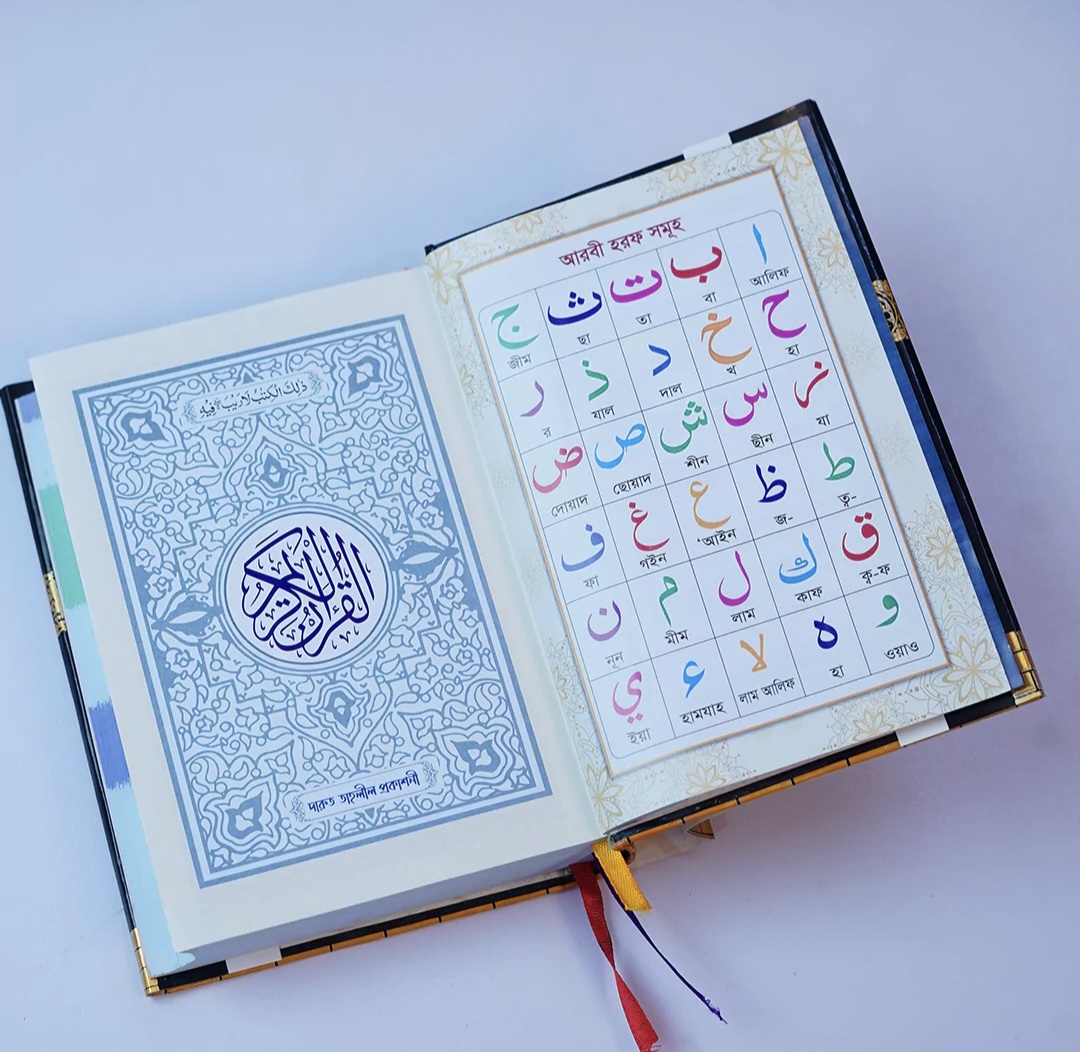 ذٰلِكَ الْكِتٰبُ لَا رَيْبَ ۛ فِيْهِ
القرآن الكريم
দারুত তাহলীল প্রকাশনী
আরবী হরফ সমূহ
ا ب ت ث ج
আলিফ বা তা ছা জীম
ح خ د ذ ر
হা খ দাল যাল র
ز س ش ص ض
যা ছীন শীন ছোয়াদ দোয়াদ
ط ظ ع غ ف
ত্ব- জ- ‘আইন গইন ফা
ق ك ل م ن
ক্ব-ফ কাফ লাম মীম নূন
و ه لا ء ي
ওয়াও হা লাম আলিফ হামযাহ ইয়া